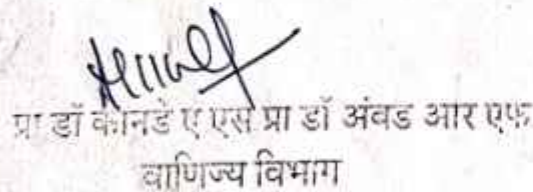 प्रा डॉ कानडे ए एस प्रा डॉ अंवड आर एफ
वाणिज्य विभाग